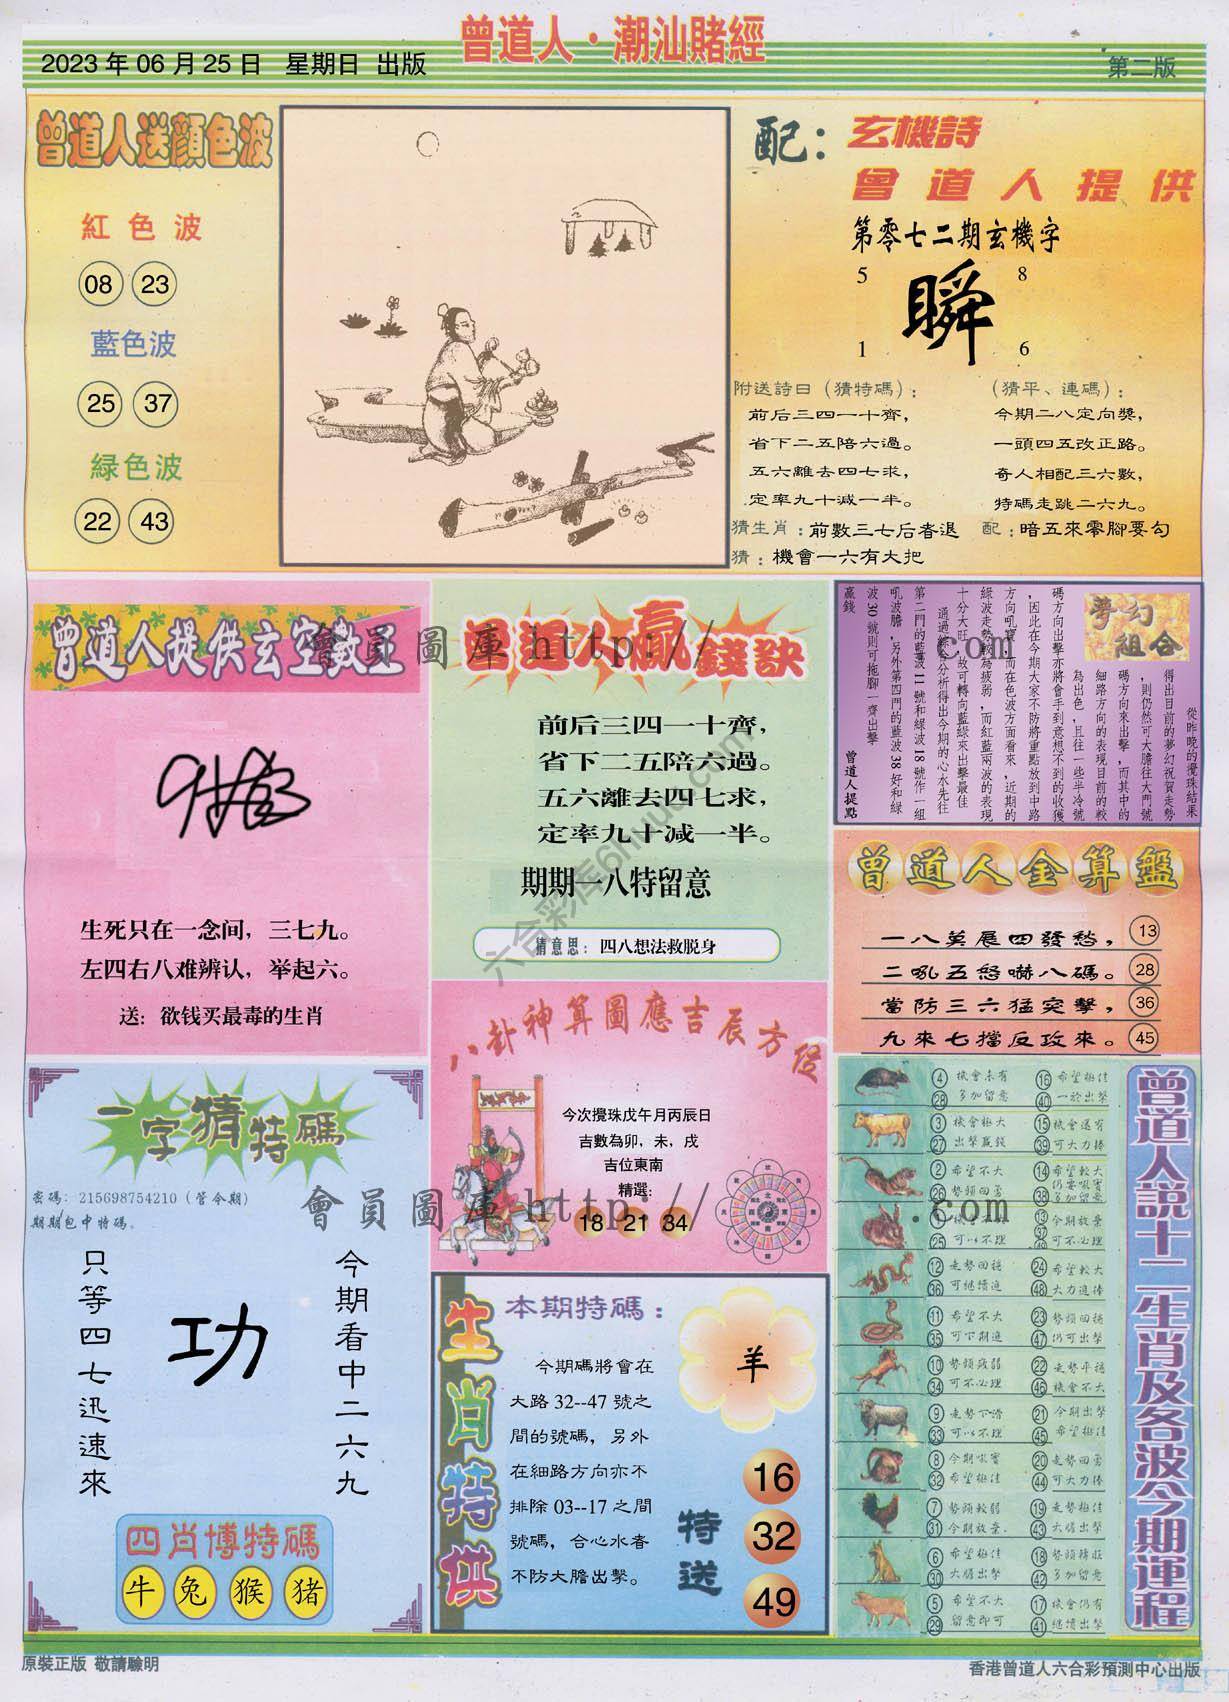 曾道人·潮汕賭經
2023年06月25日 星期日 出版
第二版
曾道人送顔色波
紅色波
08 23
藍色波
25 37
緑色波
22 43
配：玄機詩
曾道人提供
第零七二期玄機字
5 8
瞬
1 6
附送詩曰（猜特碼）：
前后三四一十齊，
省下二五陪六過。
五六離去四七求，
定率九十減一半。
（猜平、連碼）：
今期二八定向獎，
一頭四五改正路。
奇人相配三六數，
特碼走跳二六九。
猜生肖：前數三七后春退
配：暗五來零腳要勾
猜：機會一六有大把
曾道人提供玄空數王
生死只在一念间，三七九。
左四右八难辨认，举起六。
送：欲钱买最毒的生肖
曾道人贏錢訣
前后三四一十齊，
省下二五陪六過。
五六離去四七求，
定率九十减一半。
期期一八特留意
猜意思：四八想法救脱身
夢幻組合
從昨晚的攪珠結果
得出目前的夢幻祝賀走勢
，則仍然可大膽往大門號
碼方向來出擊，而其中的
細路方向的表現目前的較
為出色，且往一些半冷號
碼方向出擊亦將會手到意想不到的收獲
，因此在今期大家不防將重點放到中路
方向吼寶，而在色波方面看來，近期的
綠波走勢較為疲弱，而紅藍兩波的表現
十分大旺，故可轉向藍綠來出擊最佳
通過綜合分析得出今期的心水先往
第二門的藍波11號和緑波18號作一組
吼波膽，另外第四門的藍波38好和緑
波30號則可拖腳一齊出擊
贏錢
曾道人提點
曾道人金算盤
一八莫展四發愁， 13
二吼五怒嚇八碼。 28
當防三六猛突擊， 36
九來七擋反攻來。 45
八卦神算圖應吉辰方位
今次攪珠戊午月丙辰日
吉數為卯，未，戌
吉位東南
精選:
18 21 34
一字猜特碼
密碼：215698754210（管今期）
期期包中特碼。
今期看中二六九
功
只等四七迅速來
四肖博特碼
牛 兔 猴 猪
生肖特供
本期特碼：
羊
今期碼將會在
大路32--47號之
間的號碼，另外
在細路方向亦不
排除03--17之間
號碼，合心水春
不防大膽出擊。
特送
16
32
49
曾道人説十二生肖及各波今期運程
4 28 機會未有 多加留意 16 40 希望極佳 一於出擊
3 27 機會極大 出擊贏錢 15 39 機會還有 可大力捧
2 26 希望不大 勢頭回勇 14 38 希望較大 仍要吼實 多加留意
1 25 機會不佳 可以不理 13 37 49 今期放棄 可以不理
12 36 走勢回穩 可繼續追 24 48 希望較大 大力追捧
11 35 希望不大 可下期追 23 47 走勢回穩 仍可出擊
10 34 勢頭疲弱 可不必理 22 46 走勢平穩 機會不大
9 33 走勢下滑 可以不理 21 45 今期出擊 希望極佳
8 32 今期吼實 希望極佳 20 44 走勢回勇 可大力捧
7 31 勢頭較弱 今期放棄. 19 43 走勢極佳 大膽出擊
6 30 希望極佳 大膽出擊 18 42 勢頭轉旺 多加留意
5 29 希望不大 留意即可 17 41 機會仍有 継續出擊
會員圖庫 http://
com
會員圖庫 http://
.com
六合彩库6hvuu.com
原裝正版 敬請驗明
香港曾道人六合彩預測中心出版